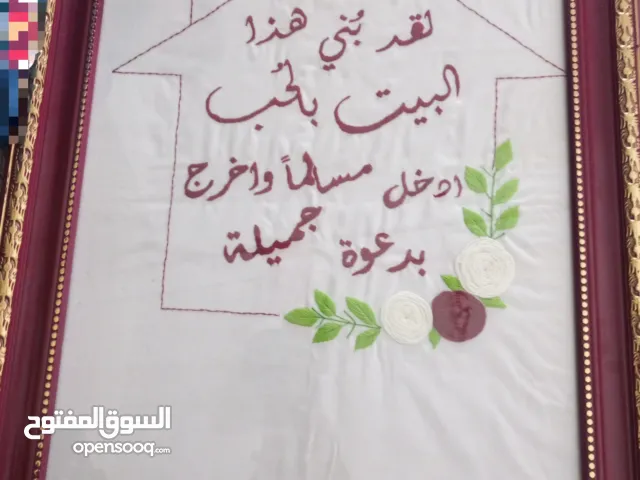 لقد بُني هذا
البيت بالحُب
ادخل مسالماً واخرج
بدعوة جميلة
السوق المفتوح
opensooq.com